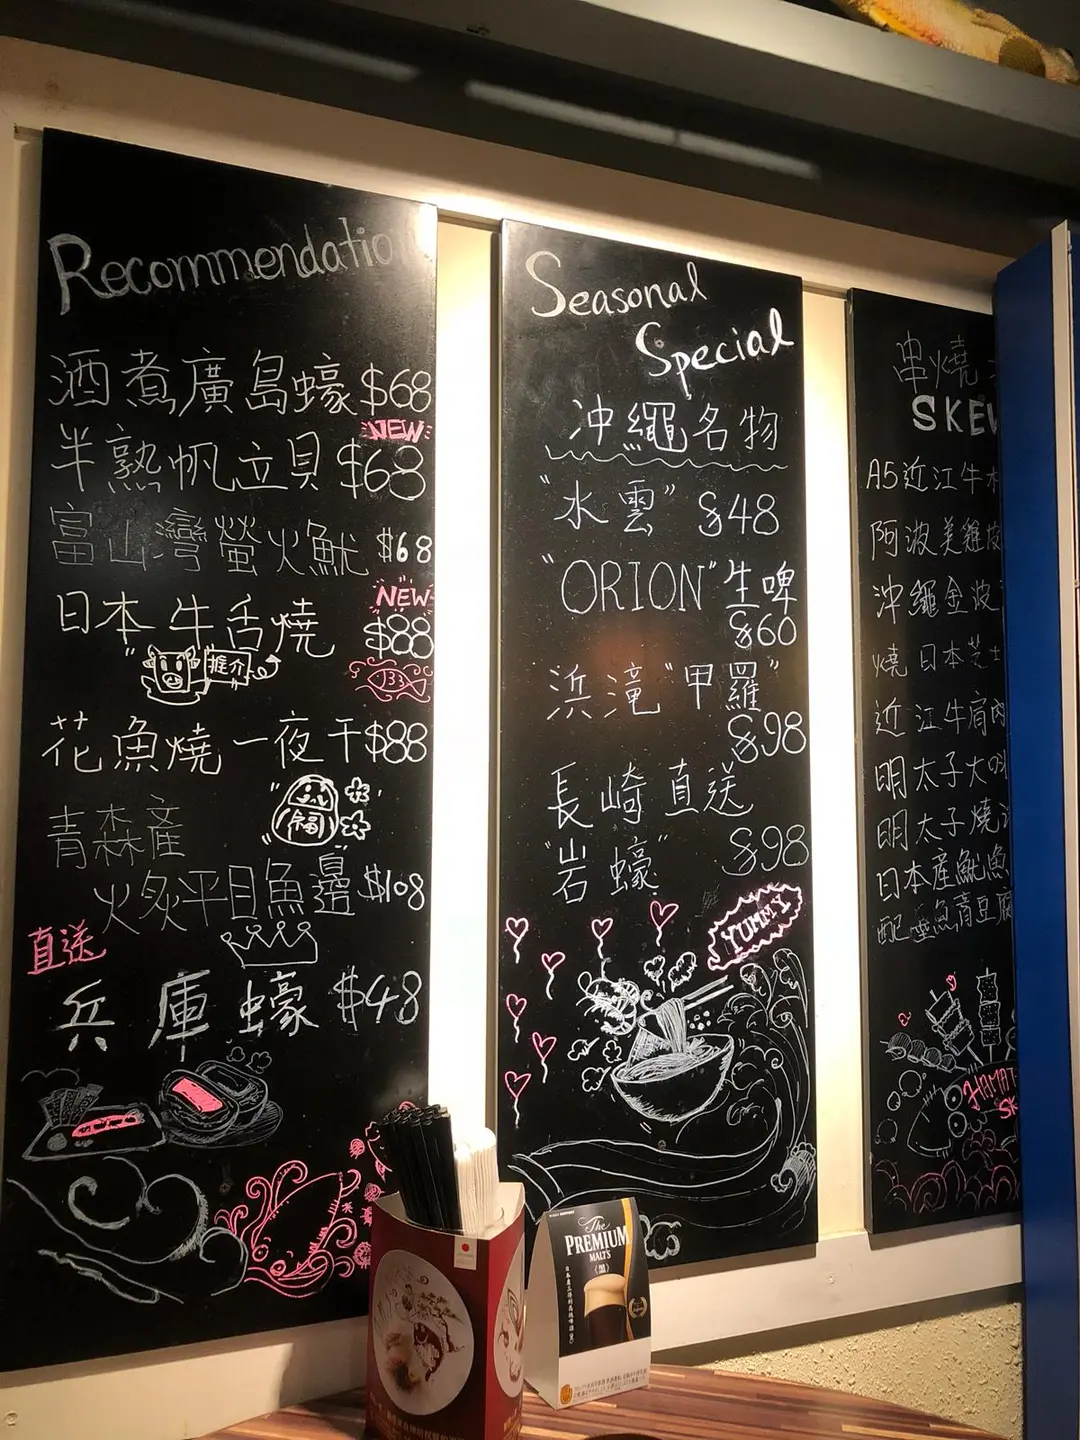 Recommendatio
酒煮廣島蠔 $68
NEW
半熟帆立貝 $68
富山灣螢火魷 $68
NEW
日本牛舌燒 $88
推介
花魚燒一夜干 $88
福
青森產
火炙平目魚邊 $108
直送
兵庫蠔 $48
Seasonal
Special
沖繩名物
"水雲" $48
"ORION"生啤
$60
浜滝"甲羅"
$98
長崎直送
"岩蠔" $98
YUMMY
串燒
SKEW
A5近江牛
阿波美雞皮
沖繩金波
燒日本芝士
近江牛肩肉
明太子大
明太子燒
日本產魷魚
配 魚青豆腐
HAMAT
SK
The
PREMIUM
MALT'S
〈黑〉